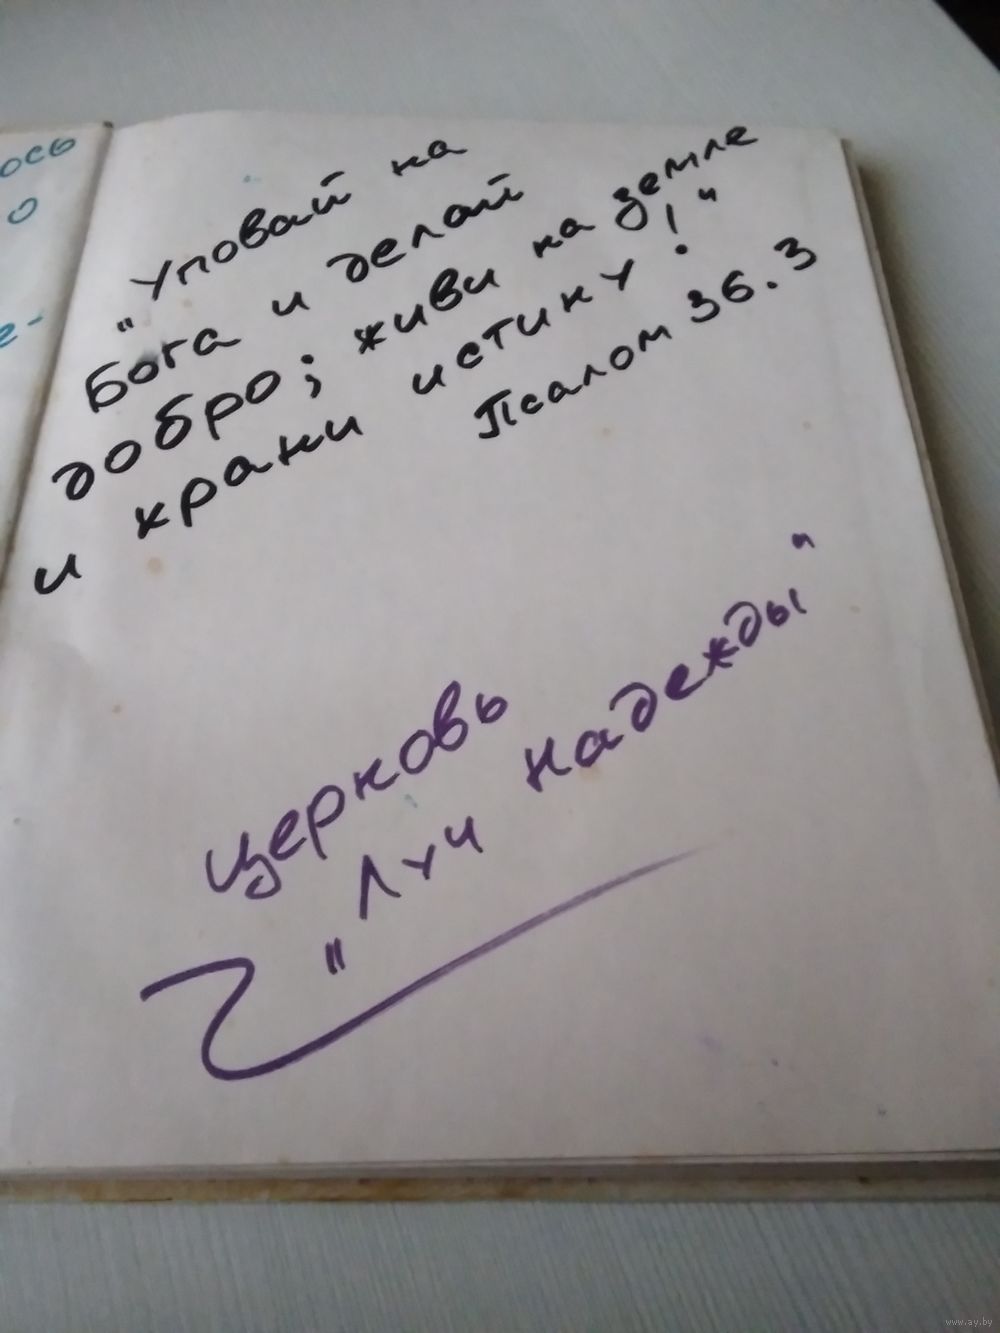 ось
о
е-
"Уповай на
Бога и делай
добро; живи на земле
и храни истину!"
Псалом 36.3
Церковь
"Луч надежды"
www.ay.by